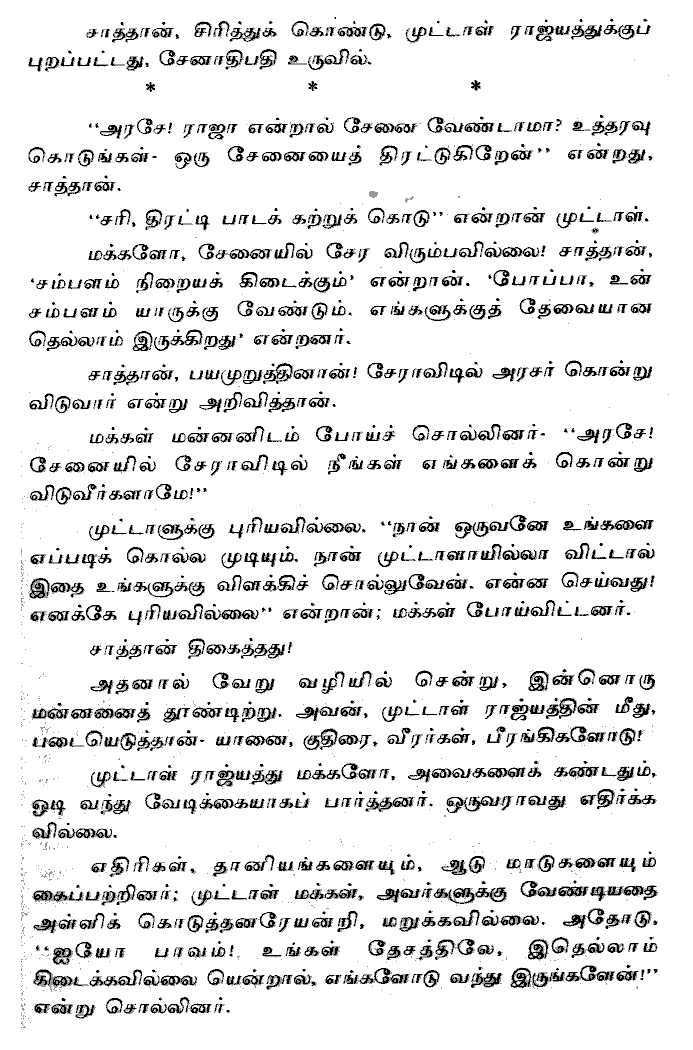 சாத்தான், சிரித்துக் கொண்டு, முட்டாள் ராஜ்யத்துக்குப்
புறப்பட்டது, சேனாதிபதி உருவில்.
* * *
"அரசே! ராஜா என்றால் சேனை வேண்டாமா? உத்தரவு
கொடுங்கள்- ஒரு சேனையைத் திரட்டுகிறேன்" என்றது,
சாத்தான்.
"சரி, திரட்டி பாடக் கற்றுக் கொடு" என்றான் முட்டாள்.
மக்களோ, சேனையில் சேர விரும்பவில்லை! சாத்தான்,
'சம்பளம் நிறையக் கிடைக்கும்' என்றான். 'போப்பா, உன்
சம்பளம் யாருக்கு வேண்டும். எங்களுக்குத் தேவையான
தெல்லாம் இருக்கிறது' என்றனர்.
சாத்தான், பயமுறுத்தினான்! சேராவிடில் அரசர் கொன்று
விடுவார் என்று அறிவித்தான்.
மக்கள் மன்னனிடம் போய்ச் சொல்லினர்- "அரசே!
சேனையில் சேராவிடில் நீங்கள் எங்களைக் கொன்று
விடுவீர்களாமே!"
முட்டாளுக்கு புரியவில்லை. "நான் ஒருவனே உங்களை
எப்படிக் கொல்ல முடியும். நான் முட்டாளாயில்லா விட்டால்
இதை உங்களுக்கு விளக்கிச் சொல்லுவேன். என்ன செய்வது!
எனக்கே புரியவில்லை" என்றான்; மக்கள் போய்விட்டனர்.
சாத்தான் திகைத்தது!
அதனால் வேறு வழியில் சென்று, இன்னொரு
மன்னனைத் தூண்டிற்று. அவன், முட்டாள் ராஜ்யத்தின் மீது,
படையெடுத்தான்- யானை, குதிரை, வீரர்கள், பீரங்கிகளோடு!
முட்டாள் ராஜ்யத்து மக்களோ, அவைகளைக் கண்டதும்,
ஓடி வந்து வேடிக்கையாகப் பார்த்தனர். ஒருவராவது எதிர்க்க
வில்லை.
எதிரிகள், தானியங்களையும், ஆடு மாடுகளையும்
கைப்பற்றினர்; முட்டாள் மக்கள், அவர்களுக்கு வேண்டியதை
அள்ளிக் கொடுத்தனரேயன்றி, மறுக்கவில்லை. அதோடு,
"ஐயோ பாவம்! உங்கள் தேசத்திலே, இதெல்லாம்
கிடைக்கவில்லை யென்றால், எங்களோடு வந்து இருங்களேன்!"
என்று சொல்லினர்.